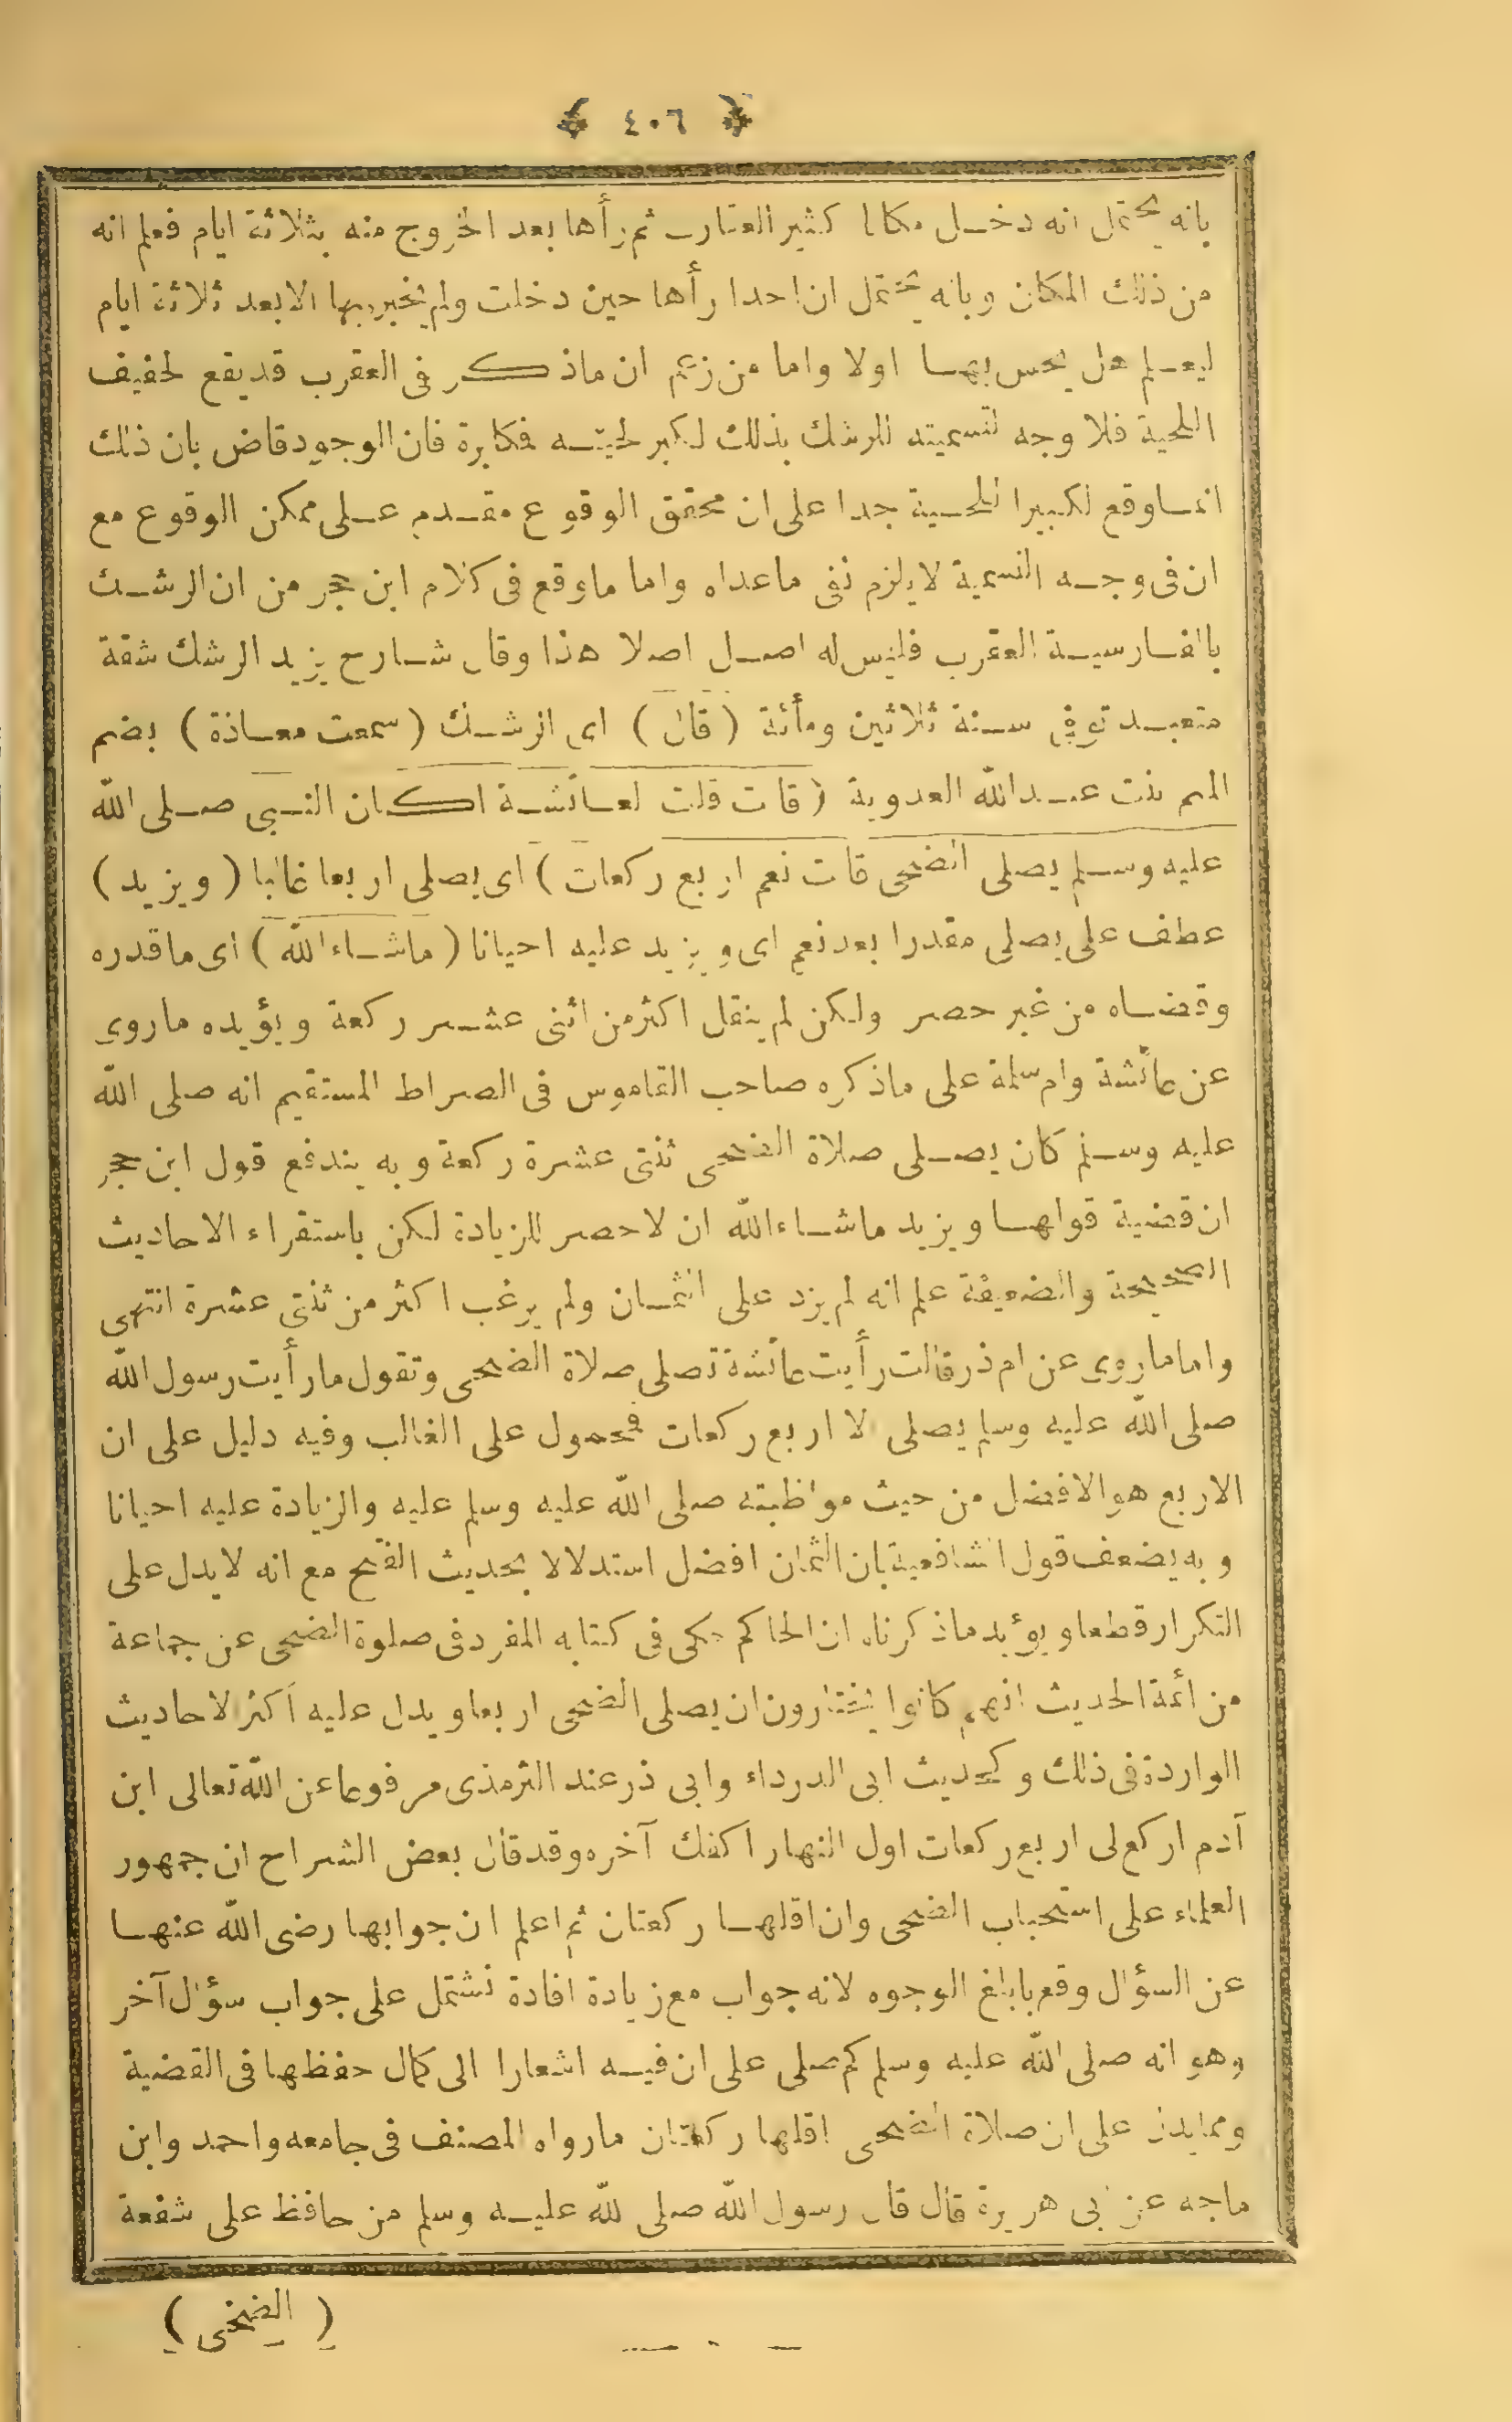 ﴿ ٤٠٦ ﴾
بانه يحتمل انه دخل مكانا كثير العقارب ثم رأها بعد الخروج منه بثلاثة ايام فعلم انه
من ذلك المكان وبانه يحتمل ان احدا رأها حين دخلت ولم يخبر بها الا بعد ثلاثة ايام
ليعلم هل يحس بها اولا واما من زعم ان ماذكر فى العقرب قد يقع لخفيف
اللحية فلا وجه لتسميته الرشك بذلك لكبر لحيته فمكابرة فان الوجود قاض بان ذلك
انما وقع لكبير اللحية جدا على ان محقق الوقوع مقدم على ممكن الوقوع مع
ان فى وجه التسمية لايلزم نفى ماعداه واما ماوقع فى كلام ابن حجر من ان الرشك
بالفارسية العقرب فليس له اصل اصلا هذا وقال شارح يزيد الرشك ثقة
متعبد توفى سنة ثلاثين ومأئة ( قال ) اى الرشك ( سمعت معاذة ) بضم
الميم بنت عبدالله العدوية ( قالت قلت لعائشة اكان النبى صلى الله
عليه وسلم يصلى الضحى قالت نعم اربع ركعات ) اى يصلى اربعا غالبا ( ويزيد )
عطف على يصلى مقدرا بعد نعم اى ويزيد عليه احيانا ( ماشاء الله ) اى ماقدره
وقضاه من غير حصر ولكن لم ينقل اكثر من اثنى عشر ركعة ويؤيده ماروى
عن عائشة وام سلمة على ماذكره صاحب القاموس فى الصراط المستقيم انه صلى الله
عليه وسلم كان يصلى صلاة الضحى ثنتى عشرة ركعة وبه يندفع قول ابن حجر
ان قضية قولها ويزيد ماشاء الله ان لاحصر للزيادة لكن باستقراء الاحاديث
الصحيحة والضعيفة علم انه لم يزد على الثمان ولم يرغب اكثر من ثنتى عشرة انتهى
واما ماروى عن ام ذر قالت رأيت عائشة تصلى صلاة الضحى وتقول مارأيت رسول الله
صلى الله عليه وسلم يصلى الا اربع ركعات فمحمول على الغالب وفيه دليل على ان
الاربع هو الافضل من حيث مواظبته صلى الله عليه وسلم عليه والزيادة عليه احيانا
وبه يضعف قول الشافعية بان الثمان افضل استدلالا بحديث الفتح مع انه لايدل على
التكرار قطعا ويؤيد ماذكرناه ان الحاكم حكى فى كتابه المفرد فى صلوة الضحى عن جماعة
من أئمة الحديث انهم كانوا يختارون ان يصلى الضحى اربعا ويدل عليه أكثر الاحاديث
الواردة فى ذلك وكحديث ابى الدرداء وابى ذر عند الترمذى مرفوعا عن الله تعالى ابن
آدم اركع لى اربع ركعات اول النهار اكفك آخره وقد قال بعض الشراح ان جمهور
العلماء على استحباب الضحى وان اقلها ركعتان ثم اعلم ان جوابها رضى الله عنها
عن السؤال وقع بابلغ الوجوه لانه جواب مع زيادة افادة تشتمل على جواب سؤال آخر
وهو انه صلى الله عليه وسلم كم صلى على ان فيه اشعارا الى كمال حفظها فى القضية
ومما يدل على ان صلاة الضحى اقلها ركعتان مارواه المصنف فى جامعه واحمد وابن
ماجه عن ابى هريرة قال قال رسول الله صلى الله عليه وسلم من حافظ على شفعة
( الضحى )